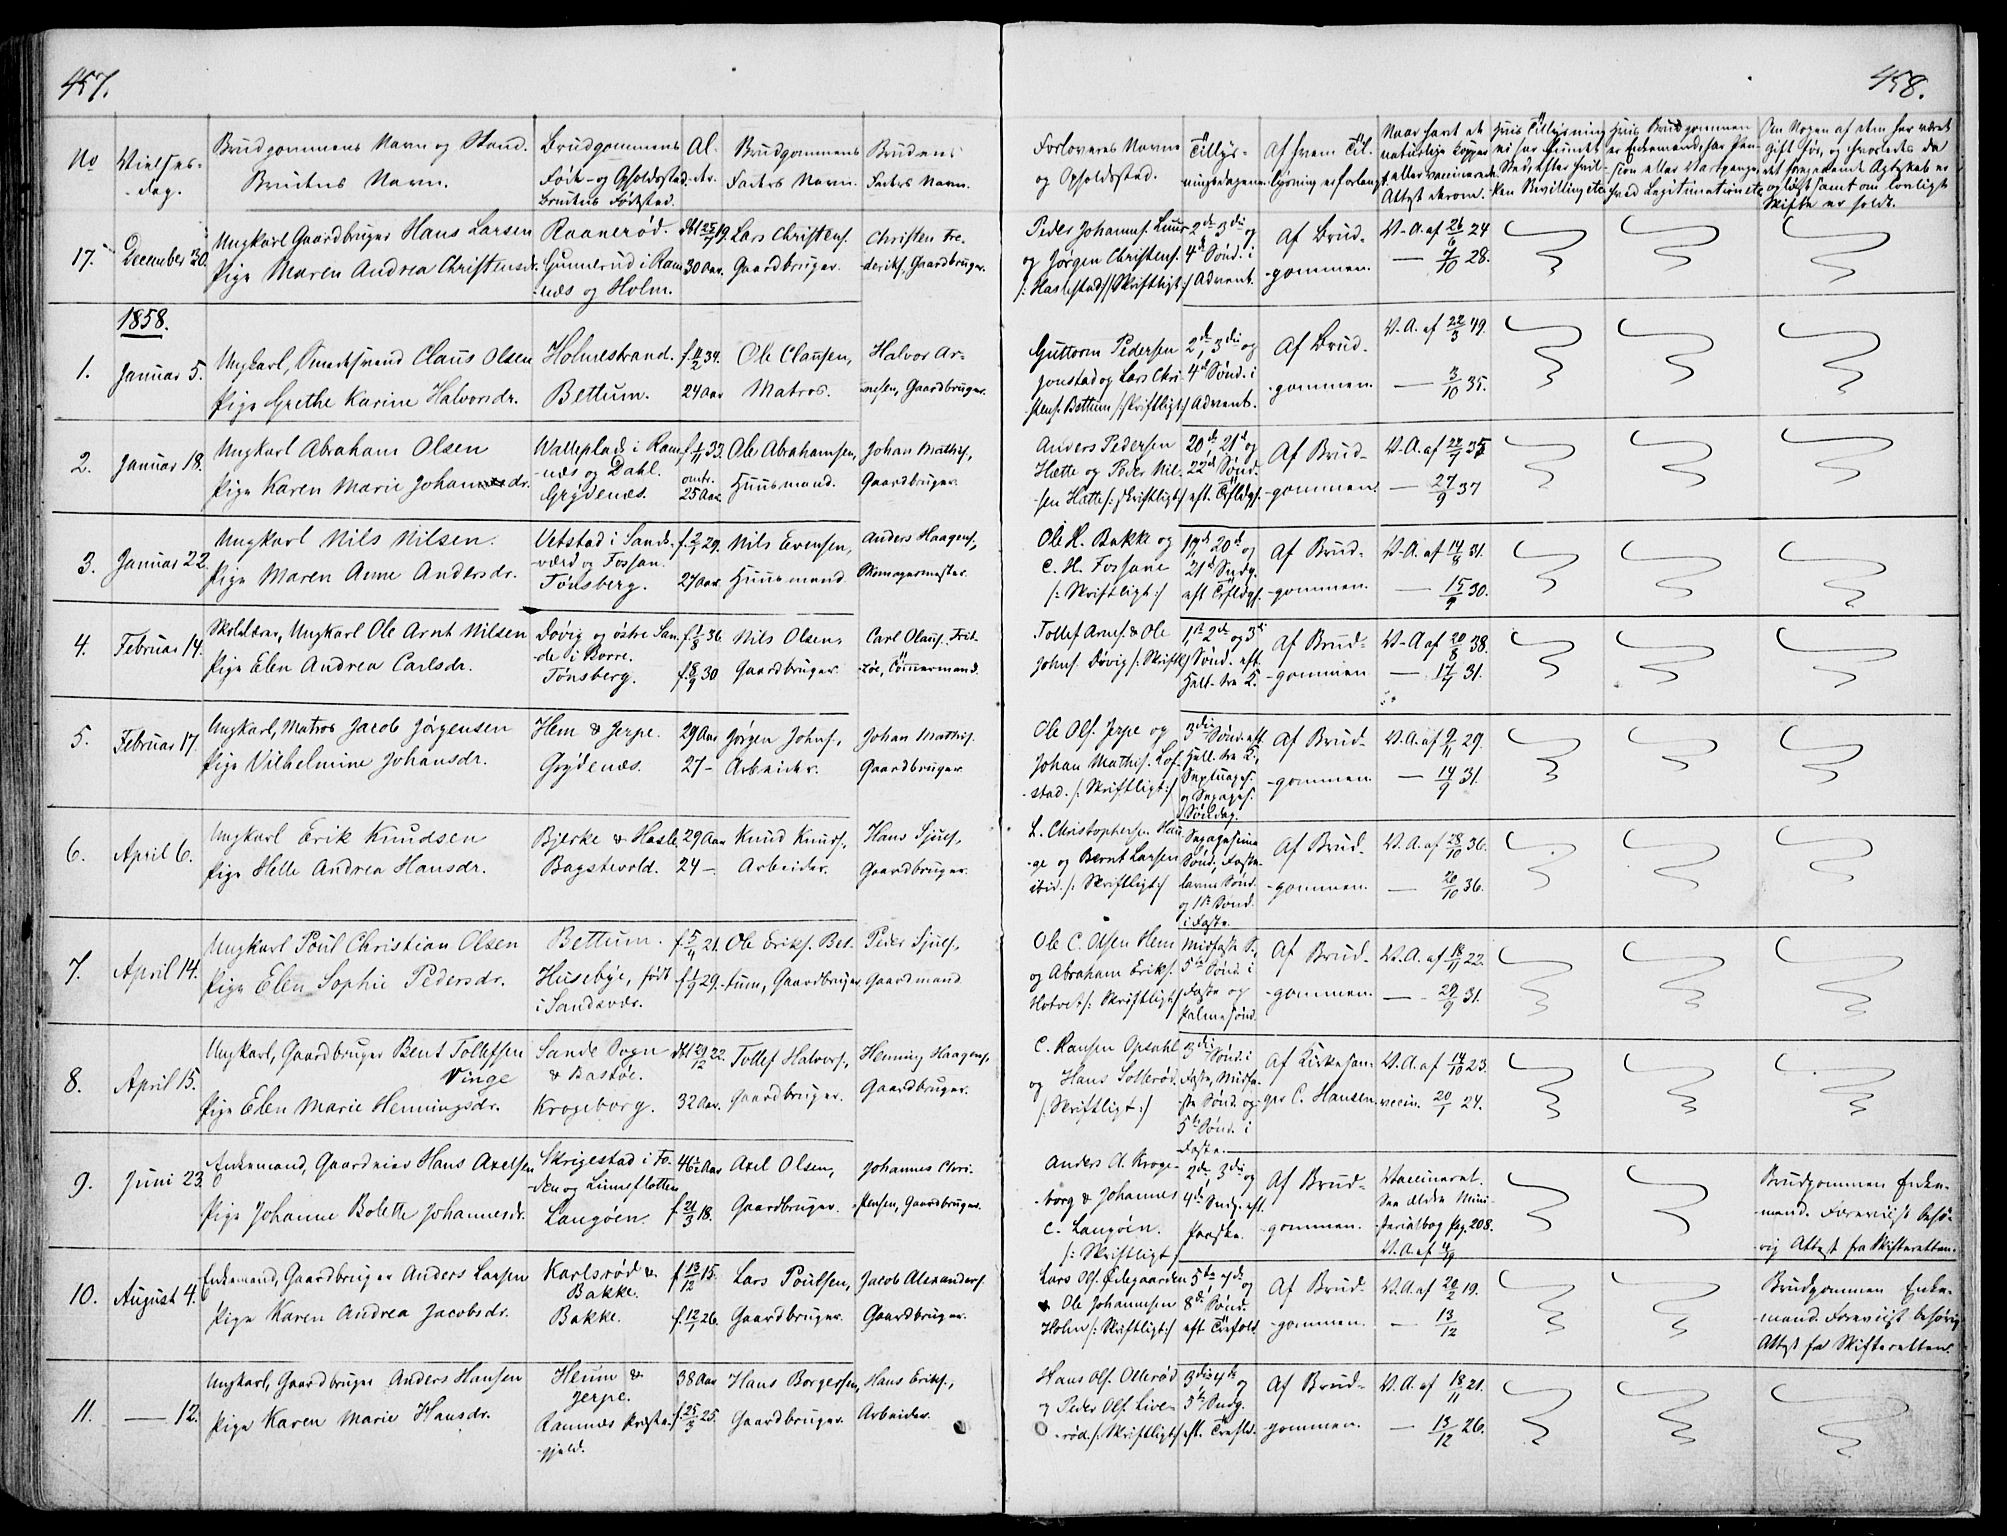 457.
458.
No
Vielses-
-dag.
Brudgommens Navn og Stand.
Brudens Navn.
Brudgommens
Føde- og Opholdssted.
Brudens Fødested.
Al-
der.
Brudgommens
Faders Navn.
Brudens
Faders Navn.
Forloveres Navne
og Opholdssted.
Tillys-
ningsdagene.
Af hvem Til-
lysning er forlangt.
17. December 30.
Ungkarl Gaardbruger Hans Larsen
Pige Maren Andrea Christensdr.
Raanerød.
Gunnerud i Ram-
næs og Holm.
døbt 25/7 19.
30 Aar.
Lars Christens.
Gaardbruger.
Christen Fre-
deriks. Gaardbruger.
Peder Johannes.
og Jørgen Christens.
/: Haslestad /: Skriftligt :/
2de, 3die og
4de Sønd. i
Advent.
Af Brud-
-gommen.
V. A. af 26/6 24
— 7/10 28.
1858.
1. Januar 5.
Ungkarl, Smedesvend Claus Olsen
Pige Grethe Karine Halvorsdr.
Holmestrand.
Bettum.
f. 11/2 34.
24 Aar
Ole Clausen,
Matros.
Halvor Ar-
nesen, Gaardbruger.
Guttorm Pedersen
Jonstad og Lars Chri-
stens. Bettum /: Skriftligt :/
2de, 3die og
4de Sønd. i
Advent.
Af Brud-
-gommen.
V. A. af 22/3 49.
— 3/10 35.
2. Januar 18.
Ungkarl Abraham Olsen
Pige Karen Marie Johannesdr.
Walleplads i Ram-
næs og Dahl.
Grydenæs.
f. 1/11 33.
omtr.
25 Aar.
Ole Abrahamsen,
Huusmand.
Johan Mathis.
Gaardbruger.
Anders Pedersen
Hætte og Peder Nil-
sen Hætte /: Skriftligt :/
20de, 21de og
22de Sønd.
eft. Trfldgh.
Af Brud-
-gommen.
V. A. af 35
— 27/9 37
3. Januar 22.
Ungkarl Nils Nilsen.
Pige Maren Anne Andersdr.
Vetstad i Sande-
-værd og Fossan.
Tønsberg.
f. 2/1 29.
27 Aar
Nils Evensen,
Huusmand
Anders Haagens.,
Skomagermester.
Ole H. Bakke og
C. H. Fossane
/: Skriftligt :/
19de, 20de og
21de Søndg.
eft. Trfldgh.
Af Brud-
-gommen.
V. A. af 14/8 31.
— 15/9 30.
4. Februar 14.
Skolelærer, Ungkarl Ole Arnt Nilsen
Pige Elen Andrea Carlsdr.
Døvig og østre San-
de i Borre.
Tønsberg.
f. 1/8 36.
f. 8/9 30
Nils Olsen,
Gaardbruger.
Carl Olaus. Frit-
zöe, Tømmermand.
Tollef Arnes. & Ole
Johns. Døvig /: Skriftl. :/
1ste 2de og 3die
Sønd. eft.
Hell. tre K.
Af Brud-
-gommen
V. A. af 20/9 38.
— 17/9 31.
5. Februar 17.
Ungkarl, Matros Jacob Jørgensen
Pige Vilhelmine Johansdr.
Hem & Jerpe.
Grydenæs.
29 Aar
27 —
Jørgen Johns.,
Arbeider.
Johan Mathis.
Gaardbruger
Ole Ols. Jerpe og
Johan Mathis. Lof-
-stad. /: Skriftligt :/
3die Sønd. eft.
Hell. tre K.,
Septuages.
og Sexages.
Søndag.
Af Brud-
-gommen.
V. A. af 9/11 29.
— 14/9 31.
6. April 6.
Ungkarl Erik Knudsen
Pige Helle Andrea Hansdr.
Bjerke & Hasle
Bagstevold.
29 Aar
24 —
Knud Knuds.,
Arbeider.
Hans Sjuls.,
Gaardbruger.
L. Christophersen Hau-
-ge og Bernt Larsen
ibid. /: Skriftligt :/
Sexagesima
Sønd., Faste-
lavns Sønd.
og 1ste Sønd.
i Faste.
Af Brud-
-gommen.
V. A. af 28/10 36.
— 26/10 36.
7. April 14.
Ungkarl Poul Christian Olsen
Pige Elen Sophie Pedersdr.
Bettum.
Husebye, født
i Sandsvær.
f. 5/4 21.
f. 1/9 29.
Ole Eriks. Bet-
-tum, Gaardbruger
Peder Sjuls.,
Gaardmand
Ole C. Olsen Hem
og Abraham Eriks.
Hotvet /: Skriftligt :/
Midfaste S.,
5te Sønd. i
Faste og
Palmesønd.
Af Brud-
-gommen.
V. A. af 18/11 22.
— 29/9 31.
8. April 15.
Ungkarl, Gaardbruger Bent Tollefsen
Vinge
Pige Elen Marie Henningsdr.
Sande Sogn
& Bastøe.
Krogeborg.
døbt 29/12 22.
32 Aar.
Tollef Halvors.,
Gaardbruger.
Henning Haagens.
Gaardbruger.
C. Hansen Opsahl
og Hans Sollerød.
/: Skriftligt :/
3die Sønd. i
Faste, Midfa-
ste Sønd. og
5te Sønd. i
Faste.
Af Kirkesan-
ger C. Hansen.
V. A. af 14/10 23.
vaccin. 20/1 24.
9. Juni 23.
Enkemand, Gaardeier Hans Axelsen
Pige Johanne Bolette Johannesdr.
Skrigestad i Fo-
-den og Linneflotten
Langøen.
46½ Aar
f 21/3 18.
Axel Olsen,
Gaardbruger.
Johannes Chri-
stensen, Gaardbruger.
Anders A. Kroge-
-borg & Johannes
C. Langöin.
/: Skriftligt :/
2de, 3die og
4de Søndg. eft.
Paaske.
Af Brud-
gommen.
Vaccineret.
See ældre Mini-
sterialbog Pag. 208.
V. A. af 4/9
Brudgommen Enke-
mand. Foreviist behö-
rig Attest fra Skifteretten.
10. August 4.
Enkemand, Gaardbruger Anders Larsen
Pige Karen Andrea Jacobsdr.
Karlsrød &
Bakke.
Bakke.
f 13/12 15.
f. 12/1 26.
Lars Poulsen,
Gaardbruger.
Jacob Alexanders.
Gaardbruger.
Lars Ols. Ødegaarden
& Ole Johannesen
Holm /: Skriftligt :/
5te, 7de og
8de Sønd.
eft. Trefold.
Af Brud-
-gommen.
V. A. af 20/2 19.
— 13/12
Brudgommen Enke-
mand. Foreviist behørig
Attest fra Skifteretten.
11. — 12.
Ungkarl, Gaardbruger Anders Hansen
Pige Karen Marie Hansdr.
Heum &
Jerpe.
Ramnæs Præste-
gjeld.
38 Aar
f 25/3 25.
Hans Borgersen,
Gaardbruger.
Hans Eriks.,
Arbeider.
Hans Ols. Ollerød
og Peder Ols. Live-
-rød. /: Skriftligt :/
3die, 4de og
5te Søndg.
eft. Trefld.
Af Brud-
gommen.
V. A. af 18/11 21.
— 13/12 26.